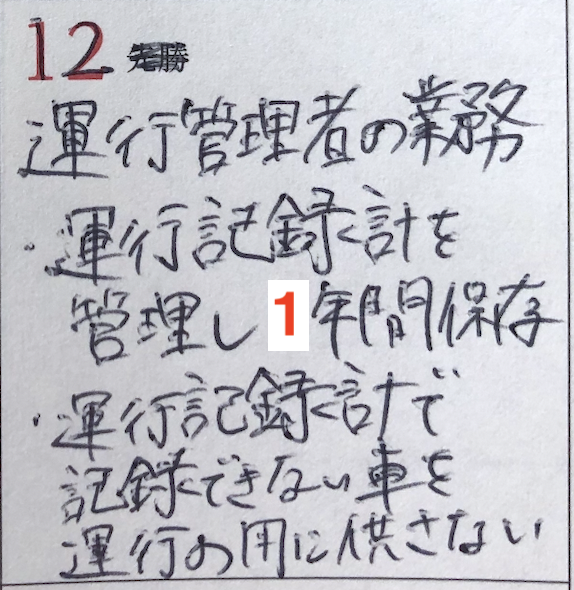 12 先勝
運行管理者の業務
・運行記録計を
管理し1年間保存
・運行記録計で
記録できない車を
運行の用に供さない